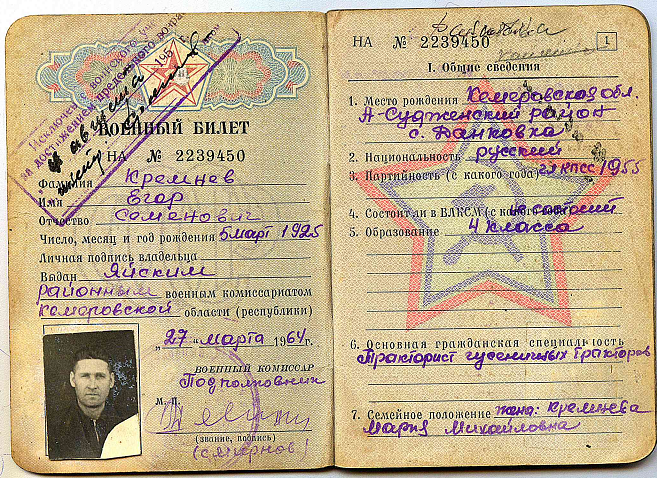 Исключен с воинского уч.
за достижением предельного возра
195
ВОЕННЫЙ БИЛЕТ
НА № 2239450
Фамилия Кремнев
Имя Егор
Отчество Семенович
Число, месяц и год рождения 5 март 1925
Личная подпись владельца
Выдан Яйским
районным военным комиссариатом
Кемеровской области (республики)
„27" марта 1964 г.
ВОЕННЫЙ КОМИССАР
Подполковник
М. П.
(звание, подпись)
(Смирнов)
НА № 2239450
1
I. Общие сведения
1. Место рождения Кемеровская обл.
А-Судженский район
с. Данковка
2. Национальность русский
3. Партийность (с какого года) чл КПСС 1955
4. Состоит ли в ВЛКСМ (с какого не состоит
5. Образование 4 класса
6. Основная гражданская специальность
Тракторист гусеничных тракторов
7. Семейное положение жена: Кремнева
Мария Михайловна